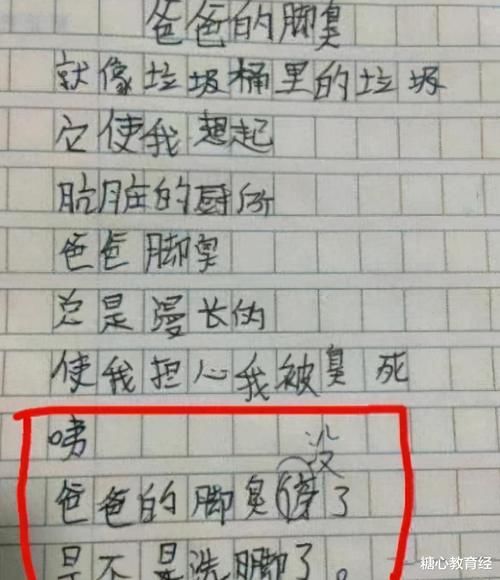 爸爸的脚臭
就像垃圾桶里的垃圾
它使我想起
肮脏的厕所
爸爸脚臭
总是漫长的
使我担心我被臭死
咦
没
爸爸的脚臭了
是不是洗脚了。
糖心教育经